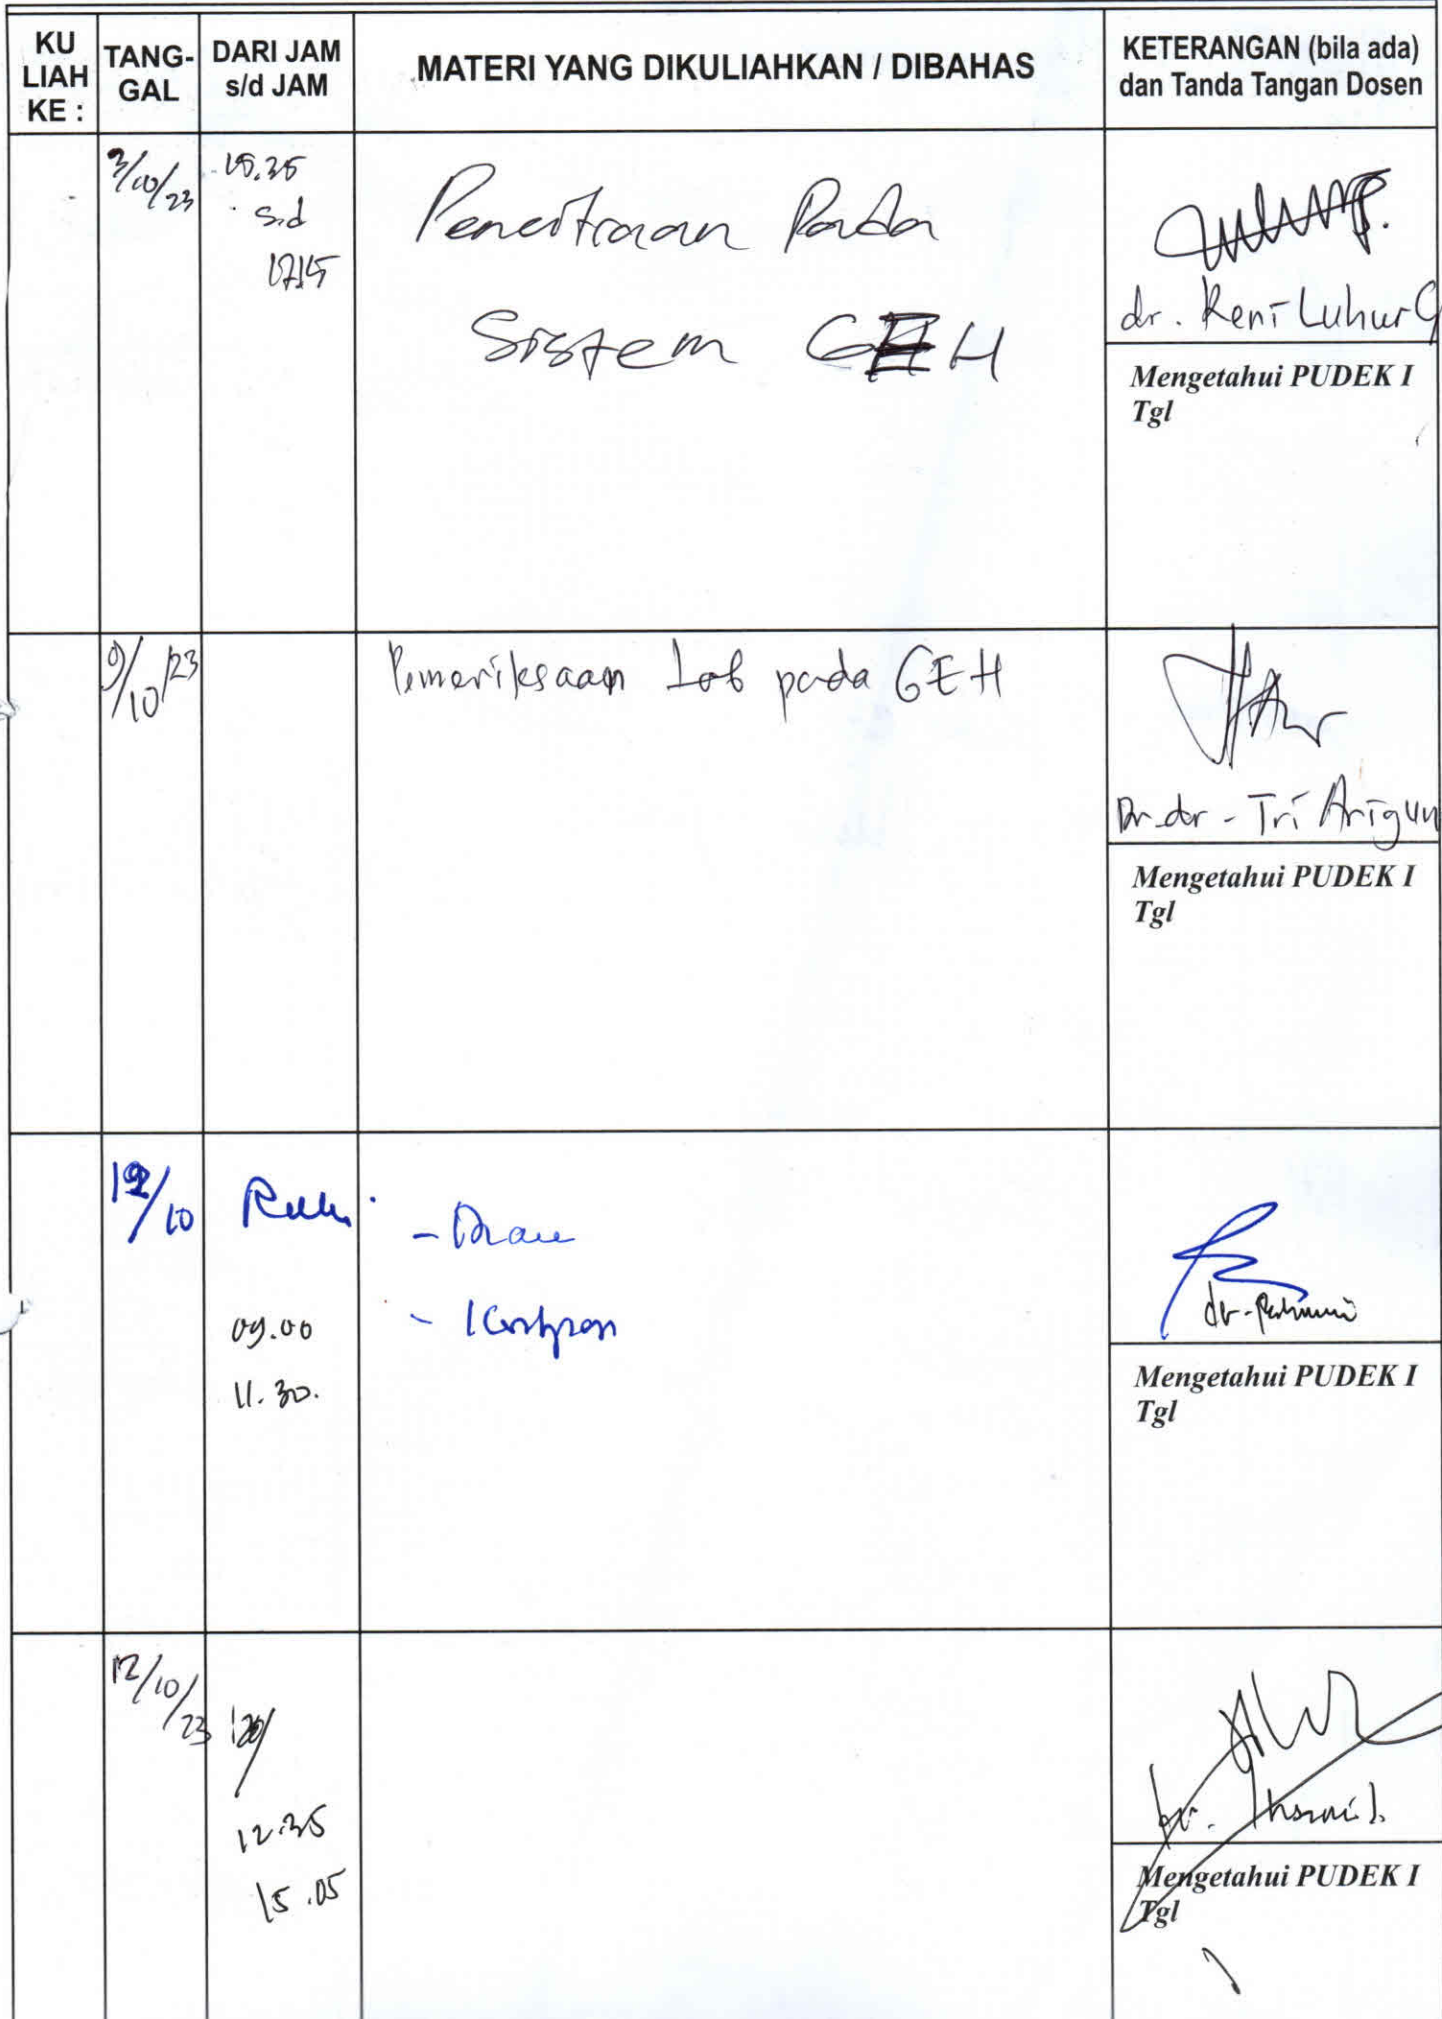 KU LIAH KE :
TANG-GAL
DARI JAM s/d JAM
MATERI YANG DIKULIAHKAN / DIBAHAS
KETERANGAN (bila ada) dan Tanda Tangan Dosen
3/10/23
15.35
s.d
Pencitraan Pada
Sistem GEH
dr. Reni Luhur
Mengetahui PUDEK I
Tgl
9/10/23
Pemeriksaan Lab pada GEH
Dr. dr - Tri Arigun
Mengetahui PUDEK I
Tgl
12/10
- Diare
09.00
11.30.
dr -
Mengetahui PUDEK I
Tgl
12/10/23
12.35
15.05
dr.
Mengetahui PUDEK I
Tgl